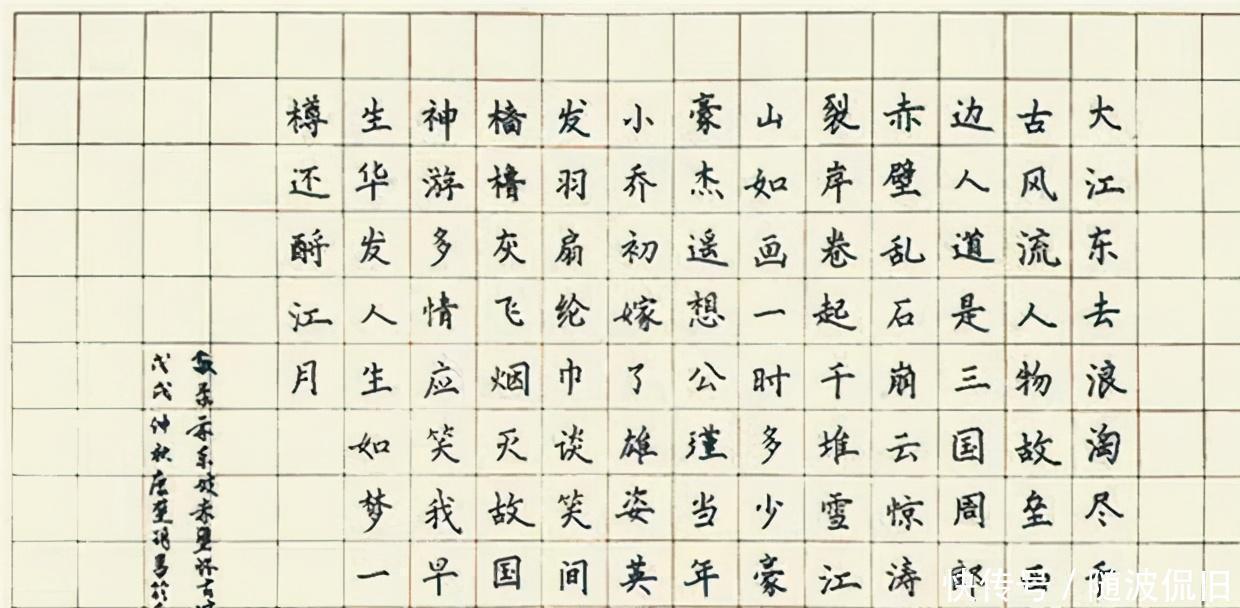 大江东去浪淘尽
古风流人物故垒西
边人道是三国周郎
赤壁乱石崩云惊涛
裂岸卷起千堆雪江
山如画一时多少豪
豪杰遥想公瑾当年
小乔初嫁了雄姿英
发羽扇纶巾谈笑间
樯橹灰飞烟灭故国
神游多情应笑我早
生华发人生如梦一
樽还酹江月
东坡赤壁怀古
戊戌仲秋
快传号 / 随波侃旧